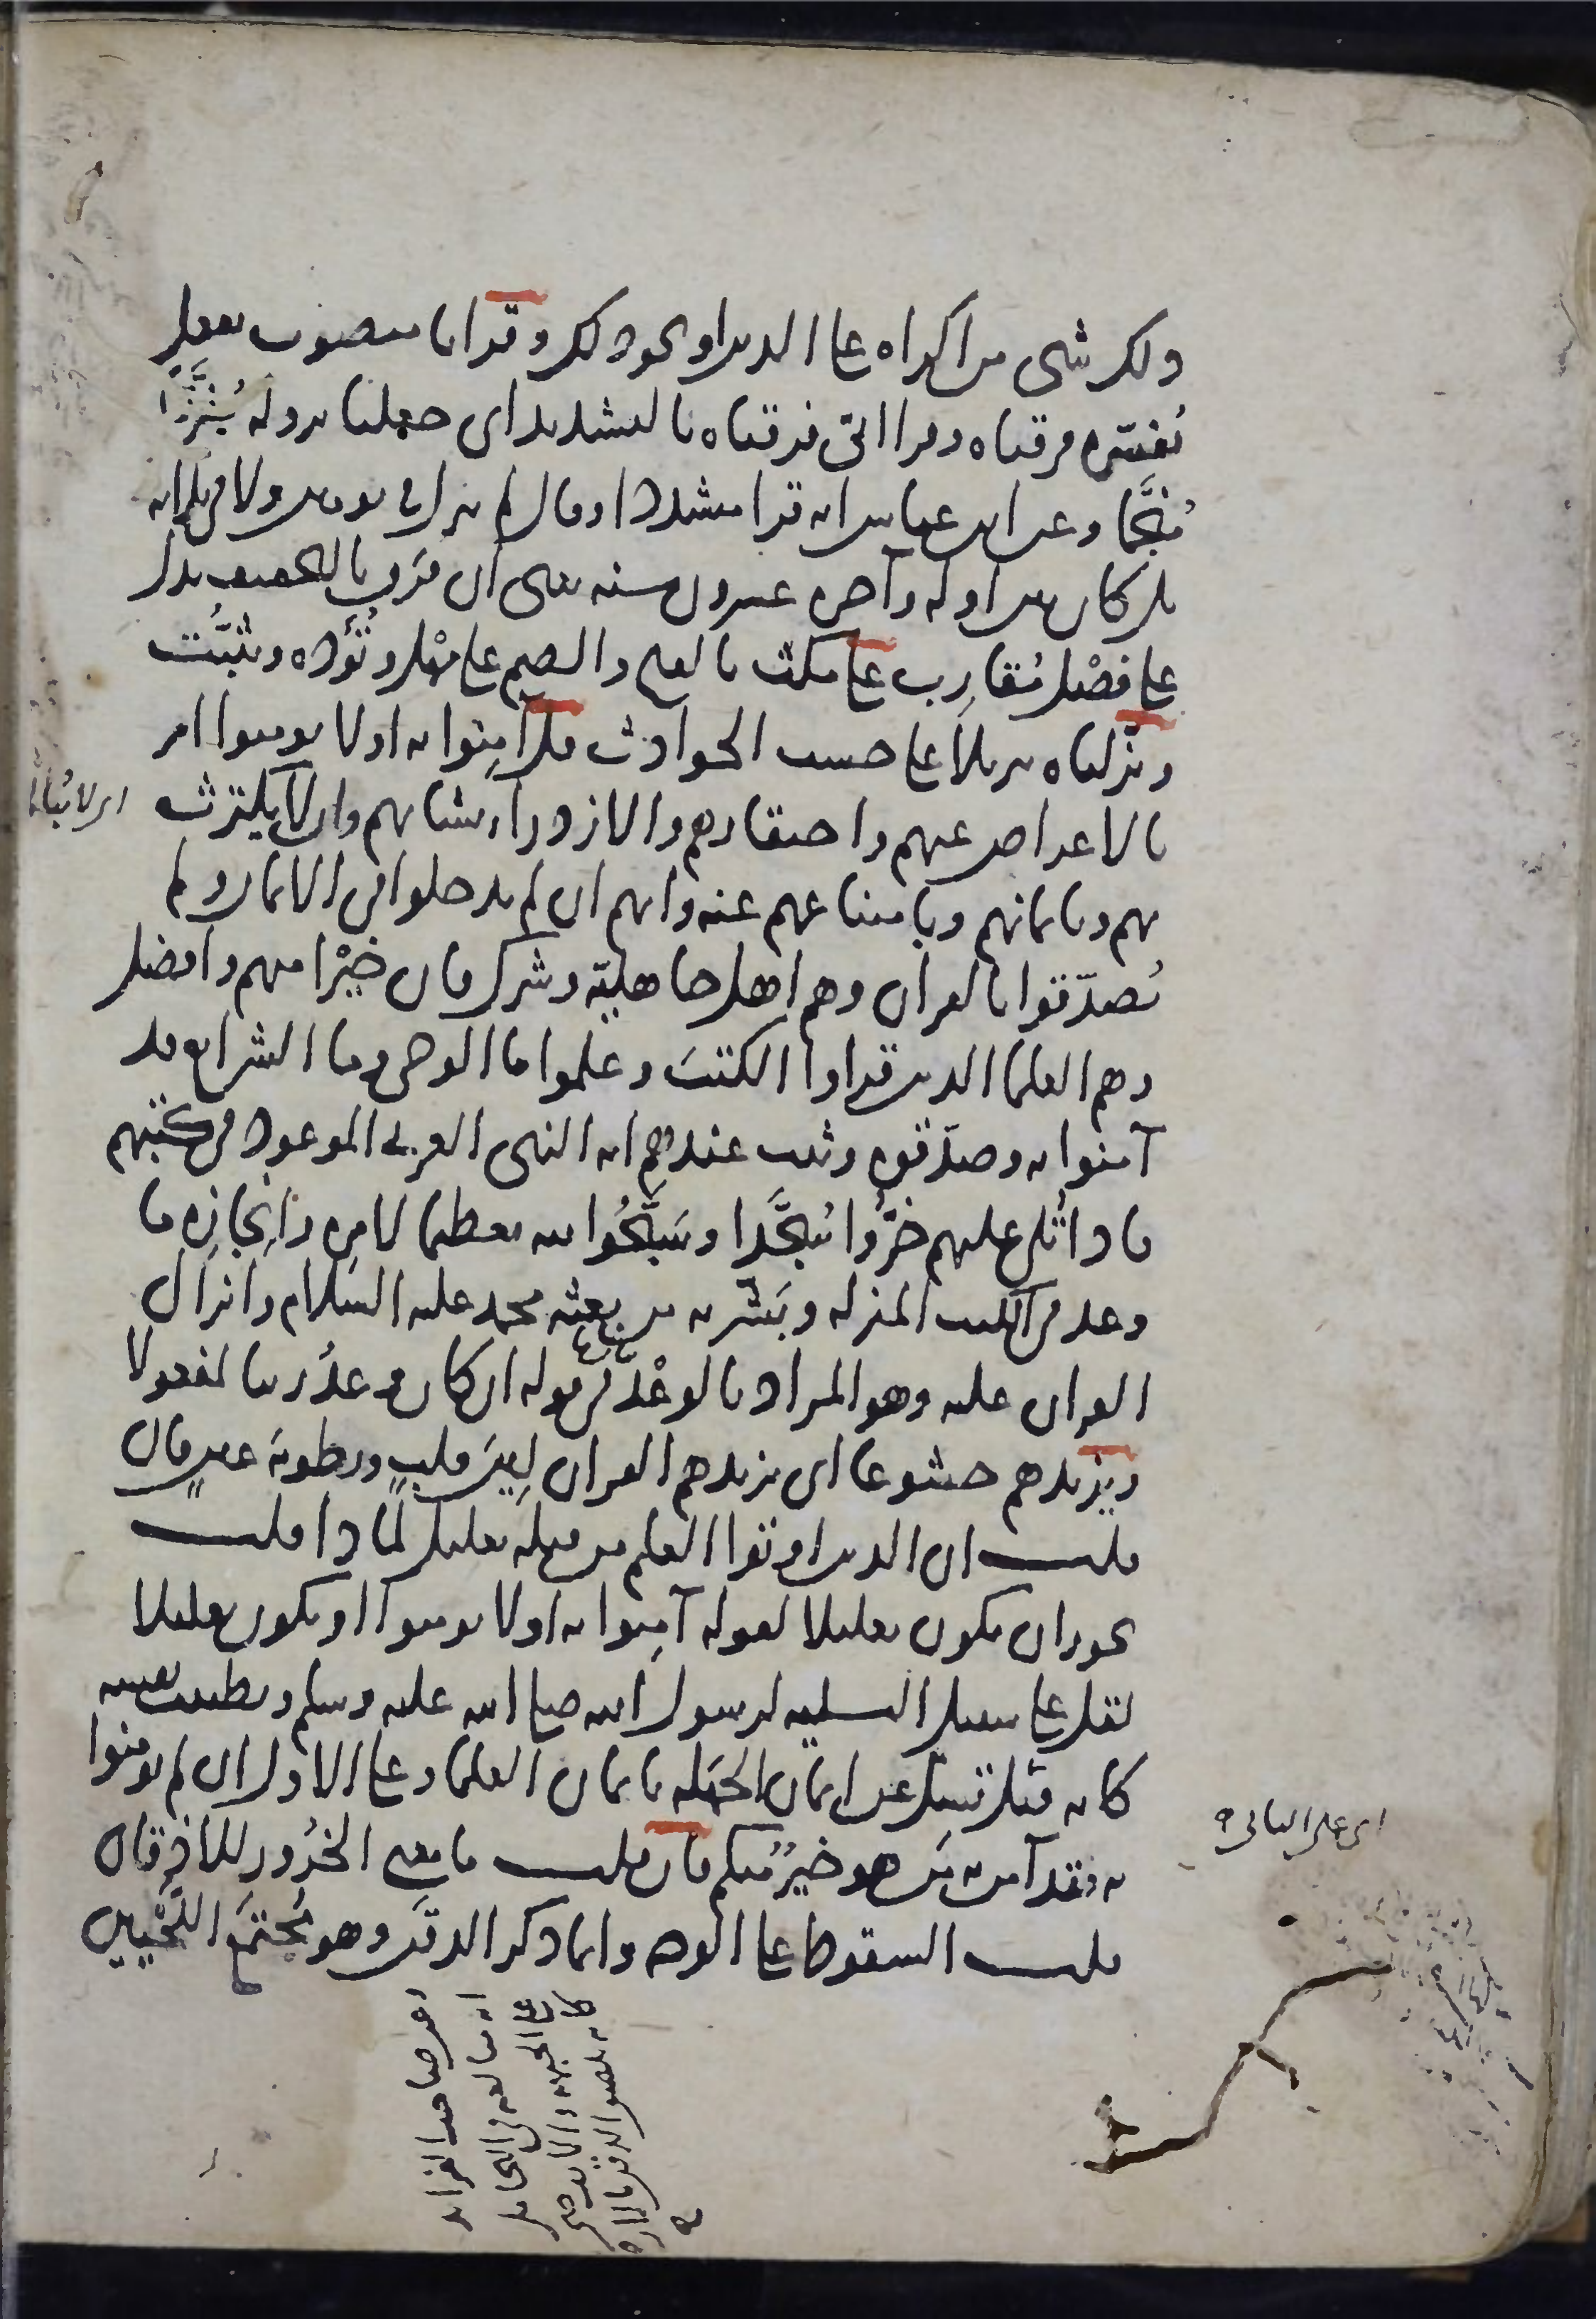 ولكل شى من اكراه على الدين او نحو ذلك وقرانا منصوب بفعل
يُفسّره فرقناه وقرا ابىّ فرقناه بالتشديد اى جعلنا نزوله مُفَرَّقا
مُنَجَّما وعن ابن عباس انه قرا مشددا وقال لم ينزل فى يومين ولا فى ثلاثه
بل كان بين اوله وآخره عشرون سنه يعنى ان فَرَق بالتخفيف يدل
على فصْل مُتقارِب على مكث بالفتح والضم على مَهْل وتُؤَده وتثبُّت
ونزلناه تنزيلا على حسب الحوادث قل آمِنوا به اولا تومنوا امر
بالاعراض عنهم واحتقارهم والازدرآء بشانهم وان لا يكترث
بهم وبايمانهم وبامتناعهم عنه وانهم ان لم يدخلوا فى الايمان ولم
يُصدّقوا بالقران وهم اهل جاهليّة وشرك فان خيْرا منهم وافضل
وهم العلما الذين قراوا الكتبَ وعلموا ما الوحى وما الشرايع قد
آمنوا به وصدّقوه وثبت عندهم انه النبى العربى الموعود فى كتبهم
فاذا تُلى عليهم خرُّوا سُجَّدا وسَبَّحُوا الله تعظيما لامرِه ولِانجازِه ما
وعد فى الكتب المنزله وبَشّر به من بعثه محمد عليه السلام وانزال
القران عليه وهو المراد بالوعْد فى قوله ان كان وعدُ ربنا لمفعولا
ويزيدهم خشوعا اى يزيدهم القران لِينَ قلبٍ ورطوبَة عينٍ فان
قلت ان الذين اوتوا العلم من قبله تعليل لماذا قلت
يجوز ان يكون تعليلا لقوله آمِنوا به اولا تومنوا او يكون تعليلا
لقل على سبيل التسليه لرسول الله صلى الله عليه وسلم وتطييب نفسه
كانه قيل تَسَلَّ عن ايمان الجهَله بايمان العلما وعلى الاول ان لم تومنوا
به فقد آمن به مَن هو خيرٌ منكم فان قلت ما معنى الخُرُور للذقن قال
قلت السقوط على الوجه وانما ذكر الذقَن وهو مُجتمَع اللَّحْيَين
اى لا يُبالى
اى على الثانى